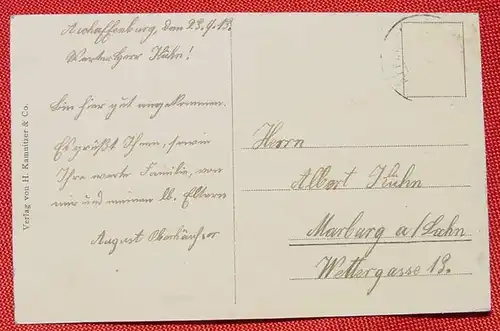 Aschaffenburg, den 23.9.13.
Werter Herr Kühn!
Bin hier gut angekommen.
Es grüßt Ihnen, sowie
Ihre werte Familie, von
mir und meinen lb. Eltern
August
Herrn
Albert Kühn
Marburg a/Lahn
Wettergasse 13.
Verlag von H. Kamnitzer & Co.